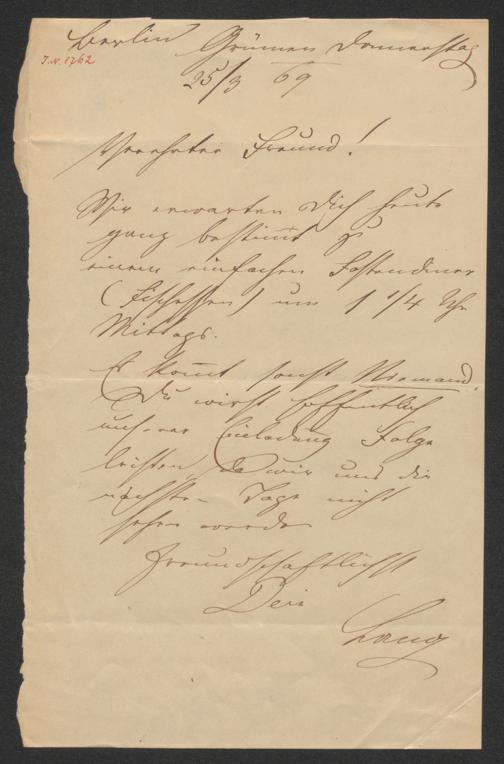 Berlin Grünen Donnerstag
I.N. 1762
25/3 69
Verehrter Freund!
Wir erwarten Dich heute
ganz bestimt zu
einem einfachen Fastendiner
(Fischessen) um 1 1/4 Uhr
Mittags.
Es komt sonst Niemand.
Du wirst hoffentlich
unserer Einladung Folge
leisten, da wir uns die
nächsten Tage nicht
sehen werden
Freundschaftlichst
Dein
Lang